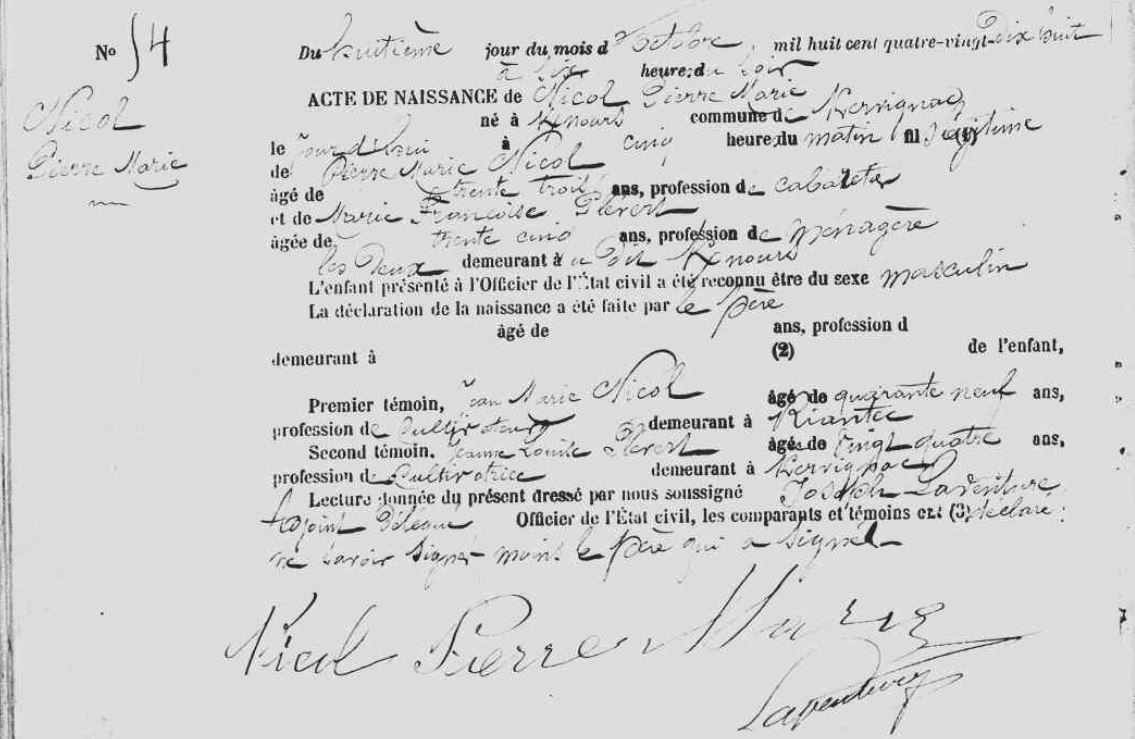 No 54
Du huitième jour du mois d'Octobre, mil huit cent quatre-vingt-Dix huit
à six heure: du Soir
Nicol
Pierre Marie
ACTE DE NAISSANCE de Nicol Pierre Marie
né à Kenours commune de Kervignac
le jour d'hui à cinq heure: du matin fil légitime (1)
de Pierre Marie Nicol
âgé de trente trois ans, profession de cabaretier
et de Marie Françoise Plévert
âgée de trente cinq ans, profession de ménagère
les Deux demeurant à u Dit Kenours
L'enfant présenté à l'Officier de l'État civil a été reconnu être du sexe masculin
La déclaration de la naissance a été faite par le père
âgé de ans, profession d
demeurant à (2) de l'enfant,
Premier témoin, Jean Marie Nicol âgé de quarante neuf ans,
profession de Cultivateur demeurant à Riantec
Second témoin, Jeanne Louise Plévert âgée de Vingt quatre ans,
profession de Cultivatrice demeurant à Kervignac
Lecture donnée du présent dressé par nous soussigné Joseph Laventure
Adjoint Délégué Officier de l'État civil, les comparants et témoins ont (3) déclaré
ne savoir signer moins le père qui a signé
Nicol Pierre Marie
Laventure